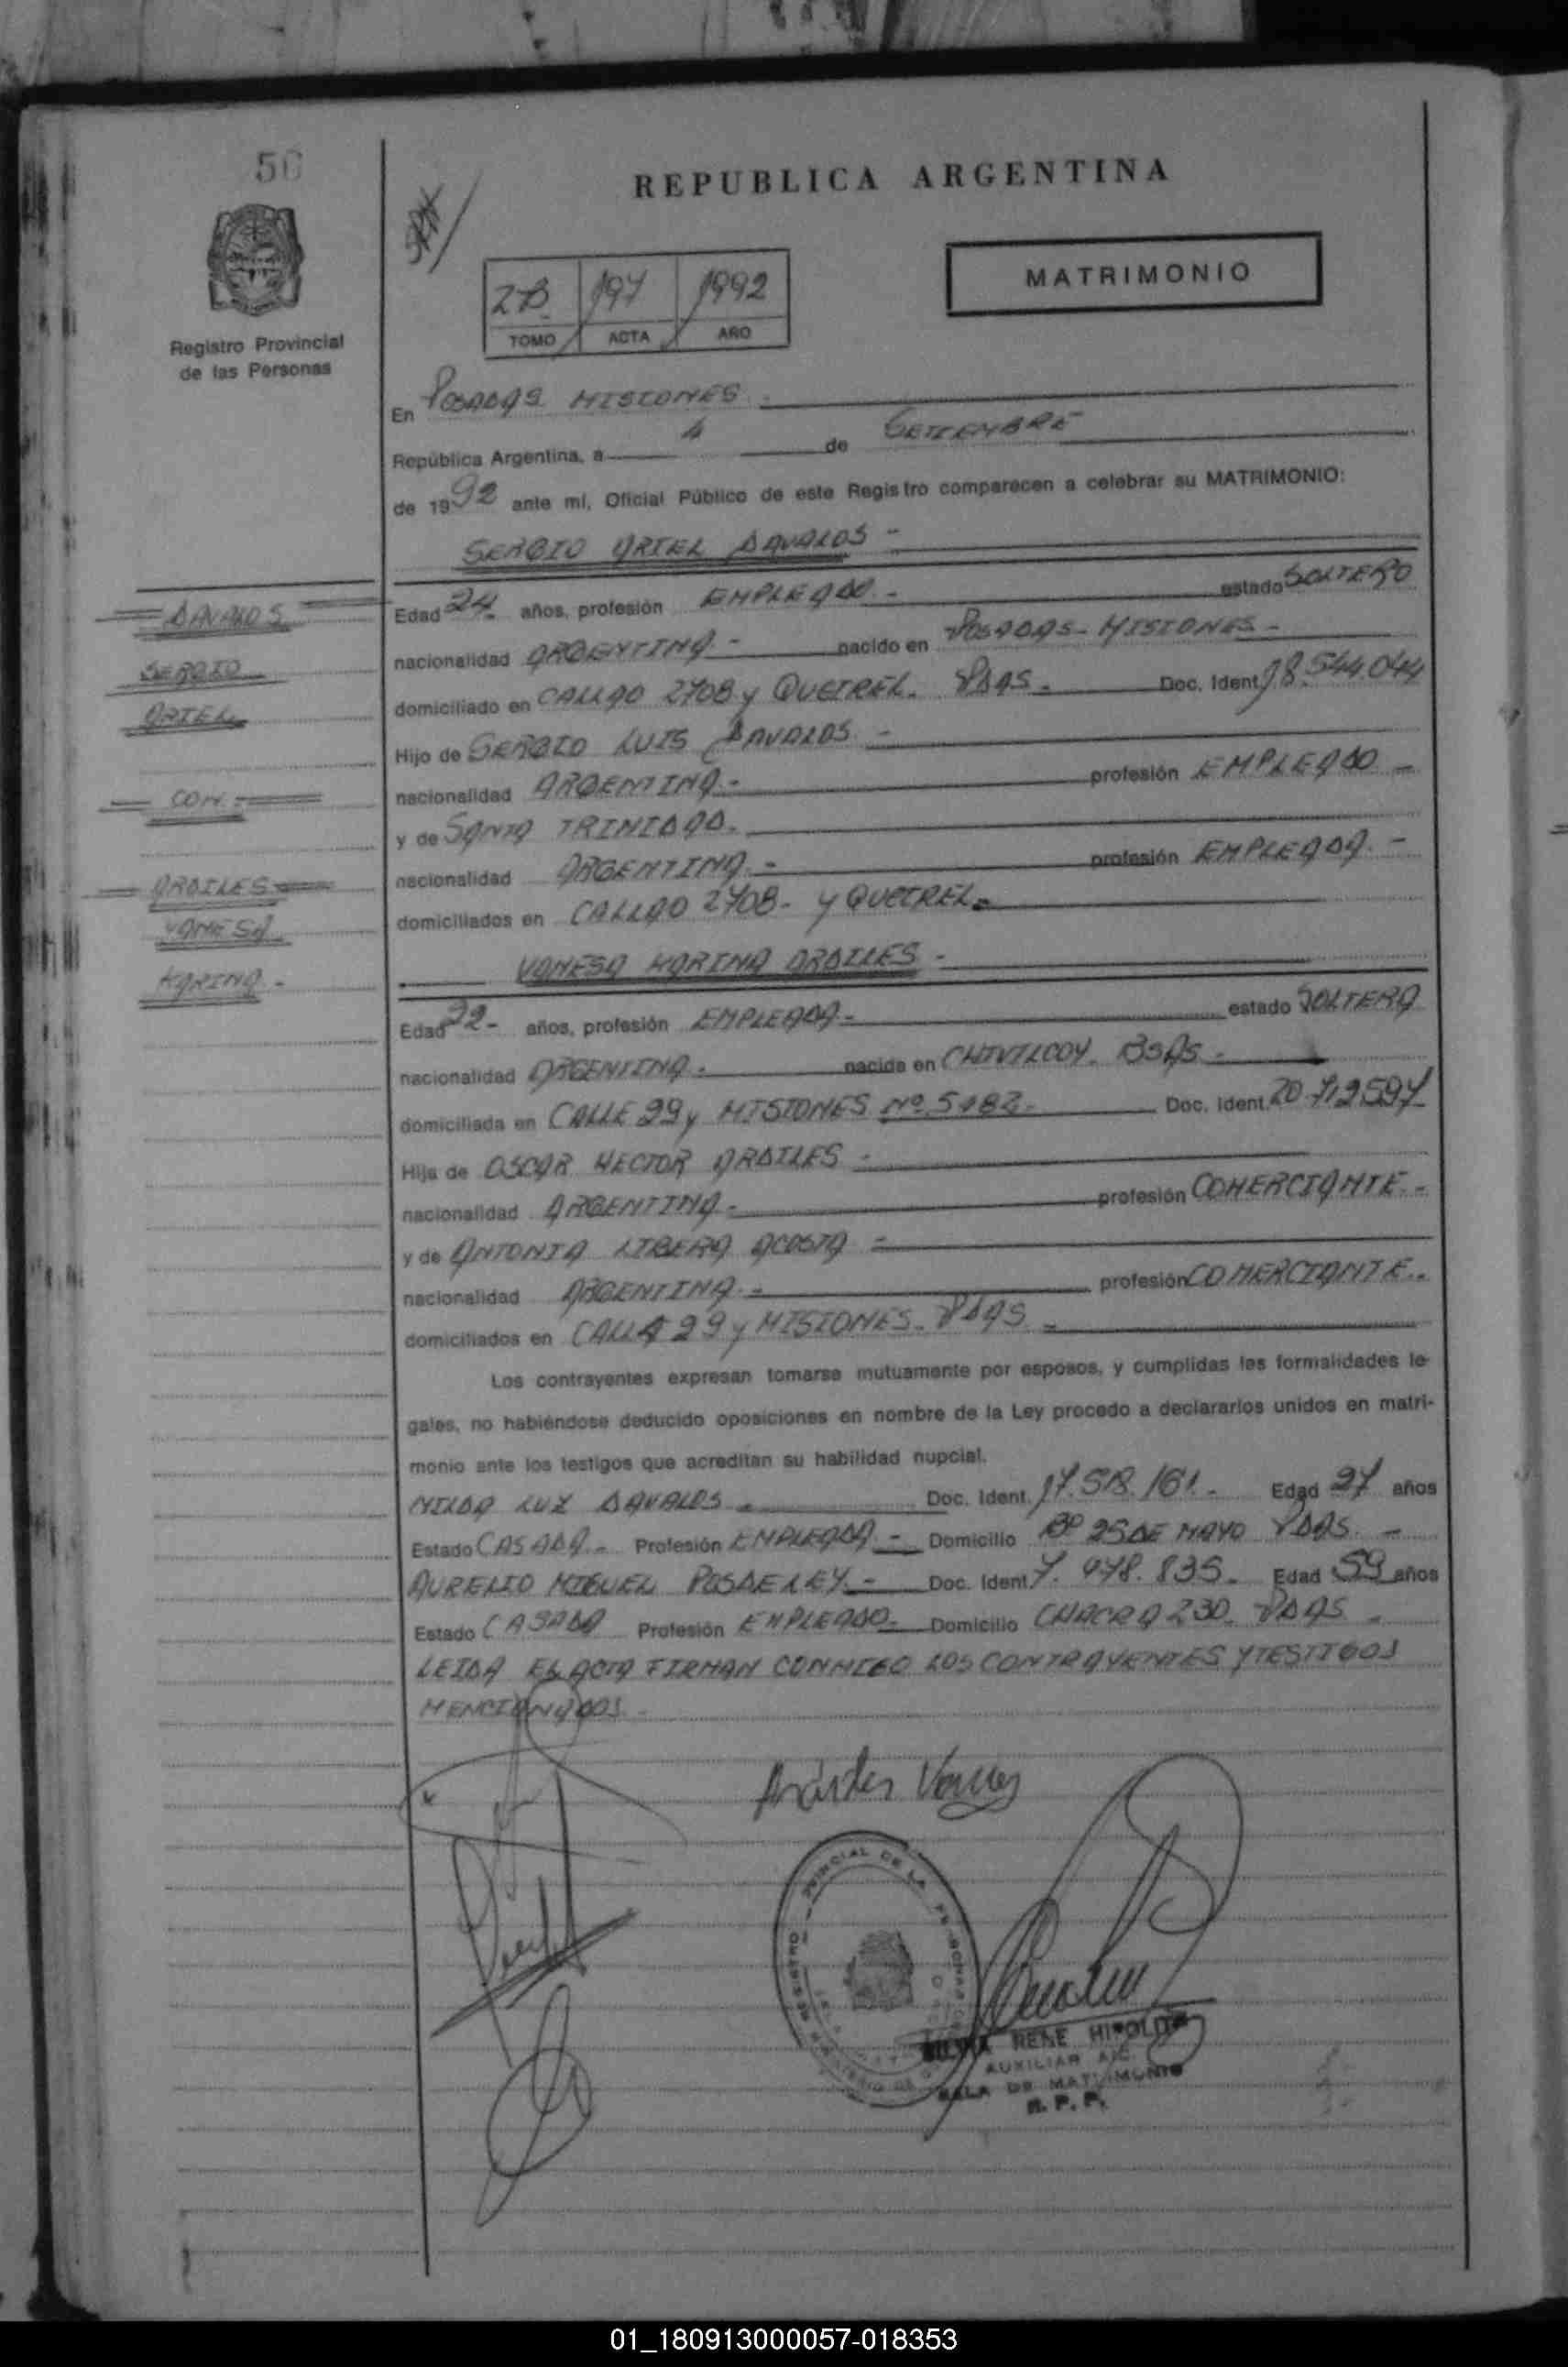 50
REPUBLICA ARGENTINA
MATRIMONIO
2B 197 1992
TOMO ACTA AÑO
Registro Provincial
de las Personas
En POSADAS MISIONES.-
República Argentina, a 4 de SETIEMBRE
de 1992 ante mí, Oficial Público de este Registro comparecen a celebrar su MATRIMONIO:
SERGIO ARIEL DAVALOS -
DAVALOS
SERGIO
ARIEL
CON.-
ARDILES
VANESA
KARINA.-
Edad 24 años, profesión EMPLEADO.- estado SOLTERO
nacionalidad ARGENTINA.- nacido en POSADAS- MISIONES-
domiciliado en CALLAO 2708 y QUEIREL. PDAS. Doc. Ident. 18.544.044
Hijo de SERGIO LUIS DAVALOS.-
nacionalidad ARGENTINA.- profesión EMPLEADO -
y de SANTA TRINIDAD.
nacionalidad ARGENTINA.- profesión EMPLEADA.-
domiciliados en CALLAO 2708- y QUEIREL.
VANESA KARINA ARDILES -
Edad 22- años, profesión EMPLEADA.- estado SOLTERA
nacionalidad ARGENTINA. nacida en CHIVILCOY. BSAS -
domiciliada en CALLE 29 y MISIONES Nº 5182- Doc. Ident. 20.712597
Hija de OSCAR HECTOR ARDILES -
nacionalidad ARGENTINA- profesión COMERCIANTE.-
y de ANTONIA LIBERA ACOSTA -
nacionalidad ARGENTINA.- profesión COMERCIANTE.
domiciliados en CALLE 29 y MISIONES. PDAS -
Los contrayentes expresan tomarse mutuamente por esposos, y cumplidas las formalidades le-
gales, no habiéndose deducido oposiciones en nombre de la Ley procedo a declararlos unidos en matri-
monio ante los testigos que acreditan su habilidad nupcial.
NILDA LUZ DAVALOS Doc. Ident. 17.518.161.- Edad 27 años
Estado CASADA.- Profesión EMPLEADA- Domicilio Bº 25 DE MAYO PDAS.-
AURELIO MIGUEL POSDELEY- Doc. Ident. 7.478.835. Edad 59 años
Estado CASADO Profesión EMPLEADO- Domicilio CHACRA 230. PDAS -
LEIDA EL ACTA FIRMAN CONMIGO LOS CONTRAYENTES Y TESTIGOS
MENCIONADOS.-
RENE HIPOLITO
AUXILIAR
SALA DE MATRIMONIO
R. P. P.
01_180913000057-018353